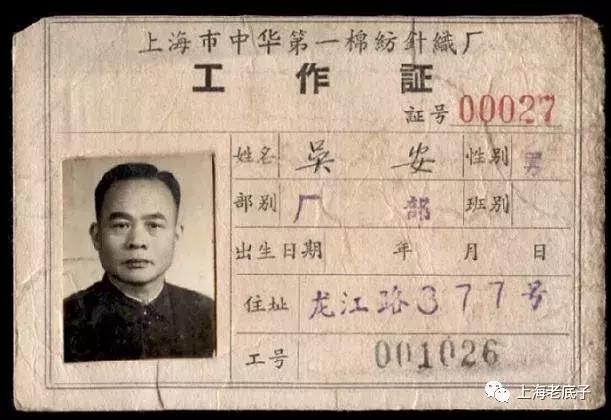 上海市中华第一棉紡針織厂
工作証
証号 00027
姓名 吴安 性别 男
部别 厂部 班别
出生日期 年 月 日
住址 龙江路377号
工号 001026
上海老底子